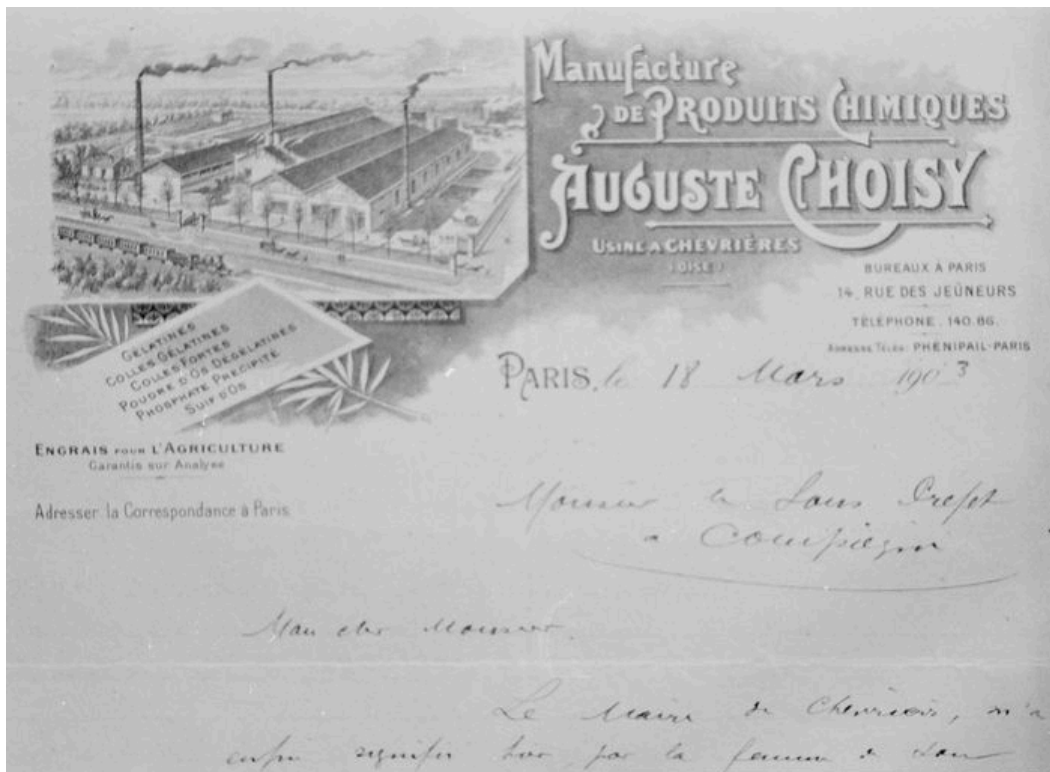 Manufacture
DE PRODUITS CHIMIQUES
AUGUSTE CHOISY
USINE A CHEVRIÈRES
(OISE)
BUREAUX À PARIS
14, RUE DES JEÛNEURS
TÉLÉPHONE. 140.86.
ADRESSE TÉLÉG: PHÉNIPAIL-PARIS
GELATINES
COLLES GÉLATINES
COLLES FORTES
POUDRE D'OS DÉGÉLATINÉS
PHOSPHATE PRÉCIPITÉ
SUIF D'OS
PARIS, le 18 Mars 1903
ENGRAIS POUR L'AGRICULTURE
Garantis sur Analyse
Adresser la Correspondance à Paris
Monsieur le Sous Préfet
a Compiègne
Mon cher Monsieur,
Le Maire de Chevrières, m'a
enfin signifié hier par la femme de son